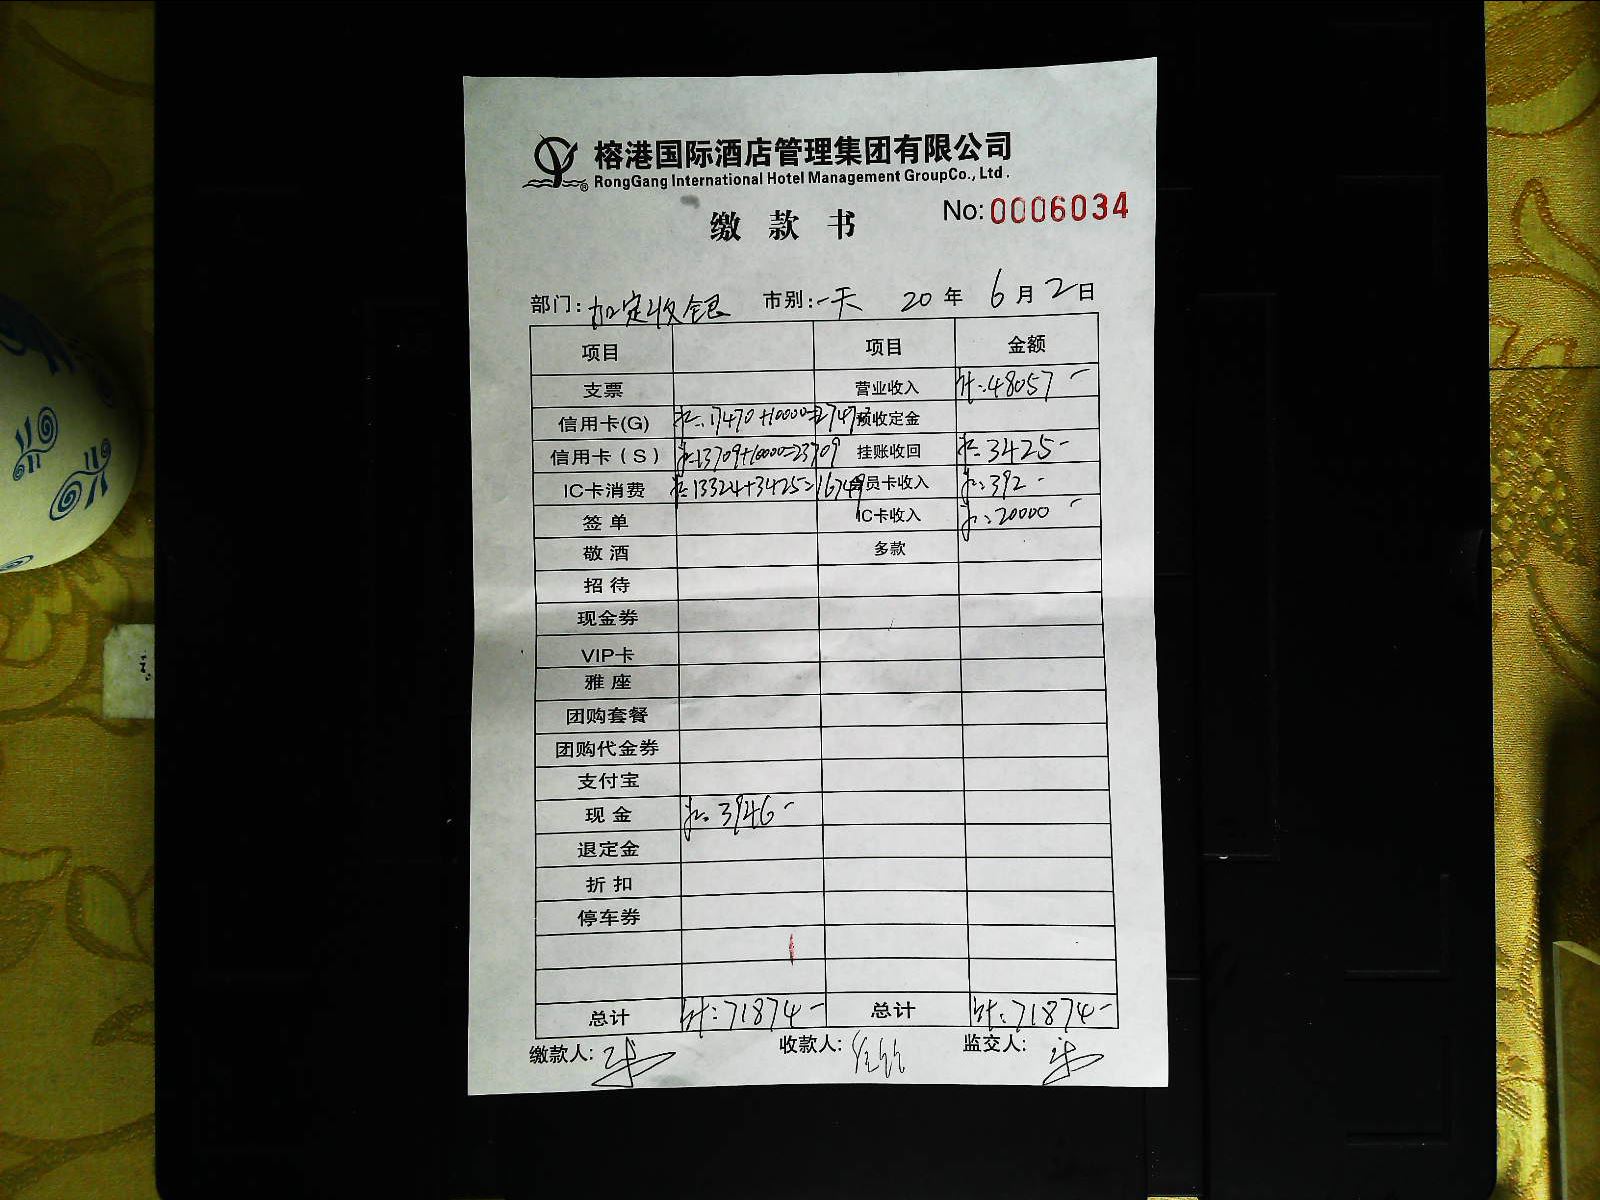 榕港国际酒店管理集团有限公司
RongGang International Hotel Management GroupCo., Ltd.
缴款书 No:0006034
部门:加定收银 市别:一天 20年6月2日
项目 项目 金额
支票 营业收入 计:48057-
信用卡(G) 17470+10000=27470 预收定金
信用卡(S) 13709+10000=23709 挂账收回 3425-
IC卡消费 13324+3425=16749 会员卡收入 392-
签单 IC卡收入 20000-
敬酒 多款
招待
现金券
VIP卡
雅座
团购套餐
团购代金券
支付宝
现金 3946-
退定金
折扣
停车券
总计 计:71874- 总计 计:71874-
缴款人: 收款人: 监交人: